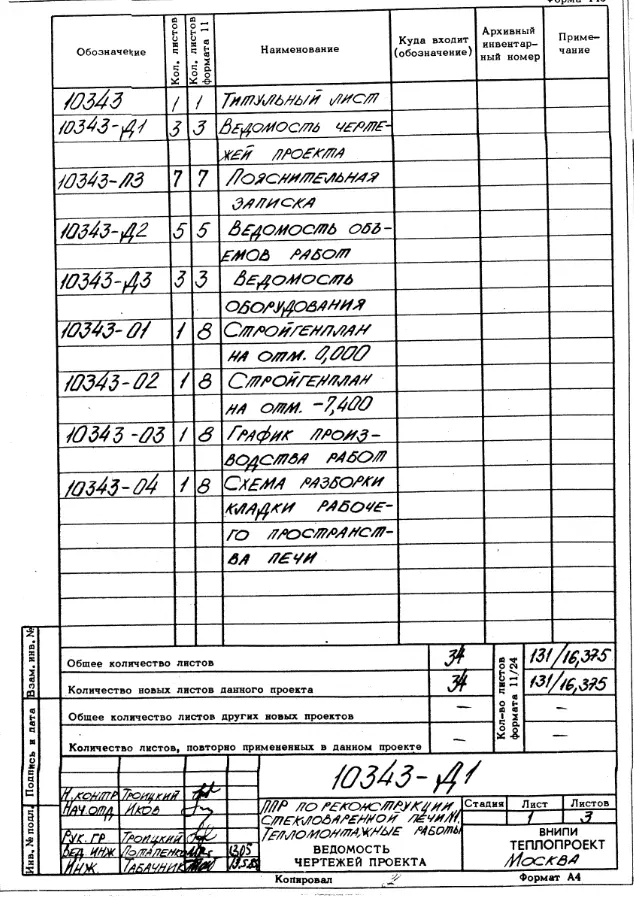 Форма
Обозначение
Кол. листов
Кол. листов формата 11
Наименование
Куда входит (обозначение)
Архивный инвентарный номер
Примечание
10343 1 1 Титульный лист
10343-Д1 3 3 Ведомость черте-
жей проекта
10343-ПЗ 7 7 Пояснительная
записка
10343-Д2 5 5 Ведомость объ-
емов работ
10343-Д3 3 3 Ведомость
оборудования
10343-01 1 8 Стройгенплан
на отм. 0,000
10343-02 1 8 Стройгенплан
на отм. -7,400
10343-03 1 8 График произ-
водства работ
10343-04 1 8 Схема разборки
кладки рабоче-
го пространст-
ва печи
Общее количество листов 34 131/16,375
Количество новых листов данного проекта 34 131/16,375
Общее количество листов других новых проектов — —
Количество листов, повторно примененных в данном проекте — —
Кол-во листов формата 11/24
Взам. инв. №
Подпись и дата
Инв. № подл.
10343-Д1
Н.контр Троицкий
Нач отд Иков
Рук. гр Троицкий
Вед. инж Потапенко 13.05
Инж. Табачник
ППР по реконструкции
стекловаренной печи
Тепломонтажные работы
ВЕДОМОСТЬ
ЧЕРТЕЖЕЙ ПРОЕКТА
Стадия Лист Листов
1 3
ВНИПИ
ТЕПЛОПРОЕКТ
Москва
Копировал
Формат А4